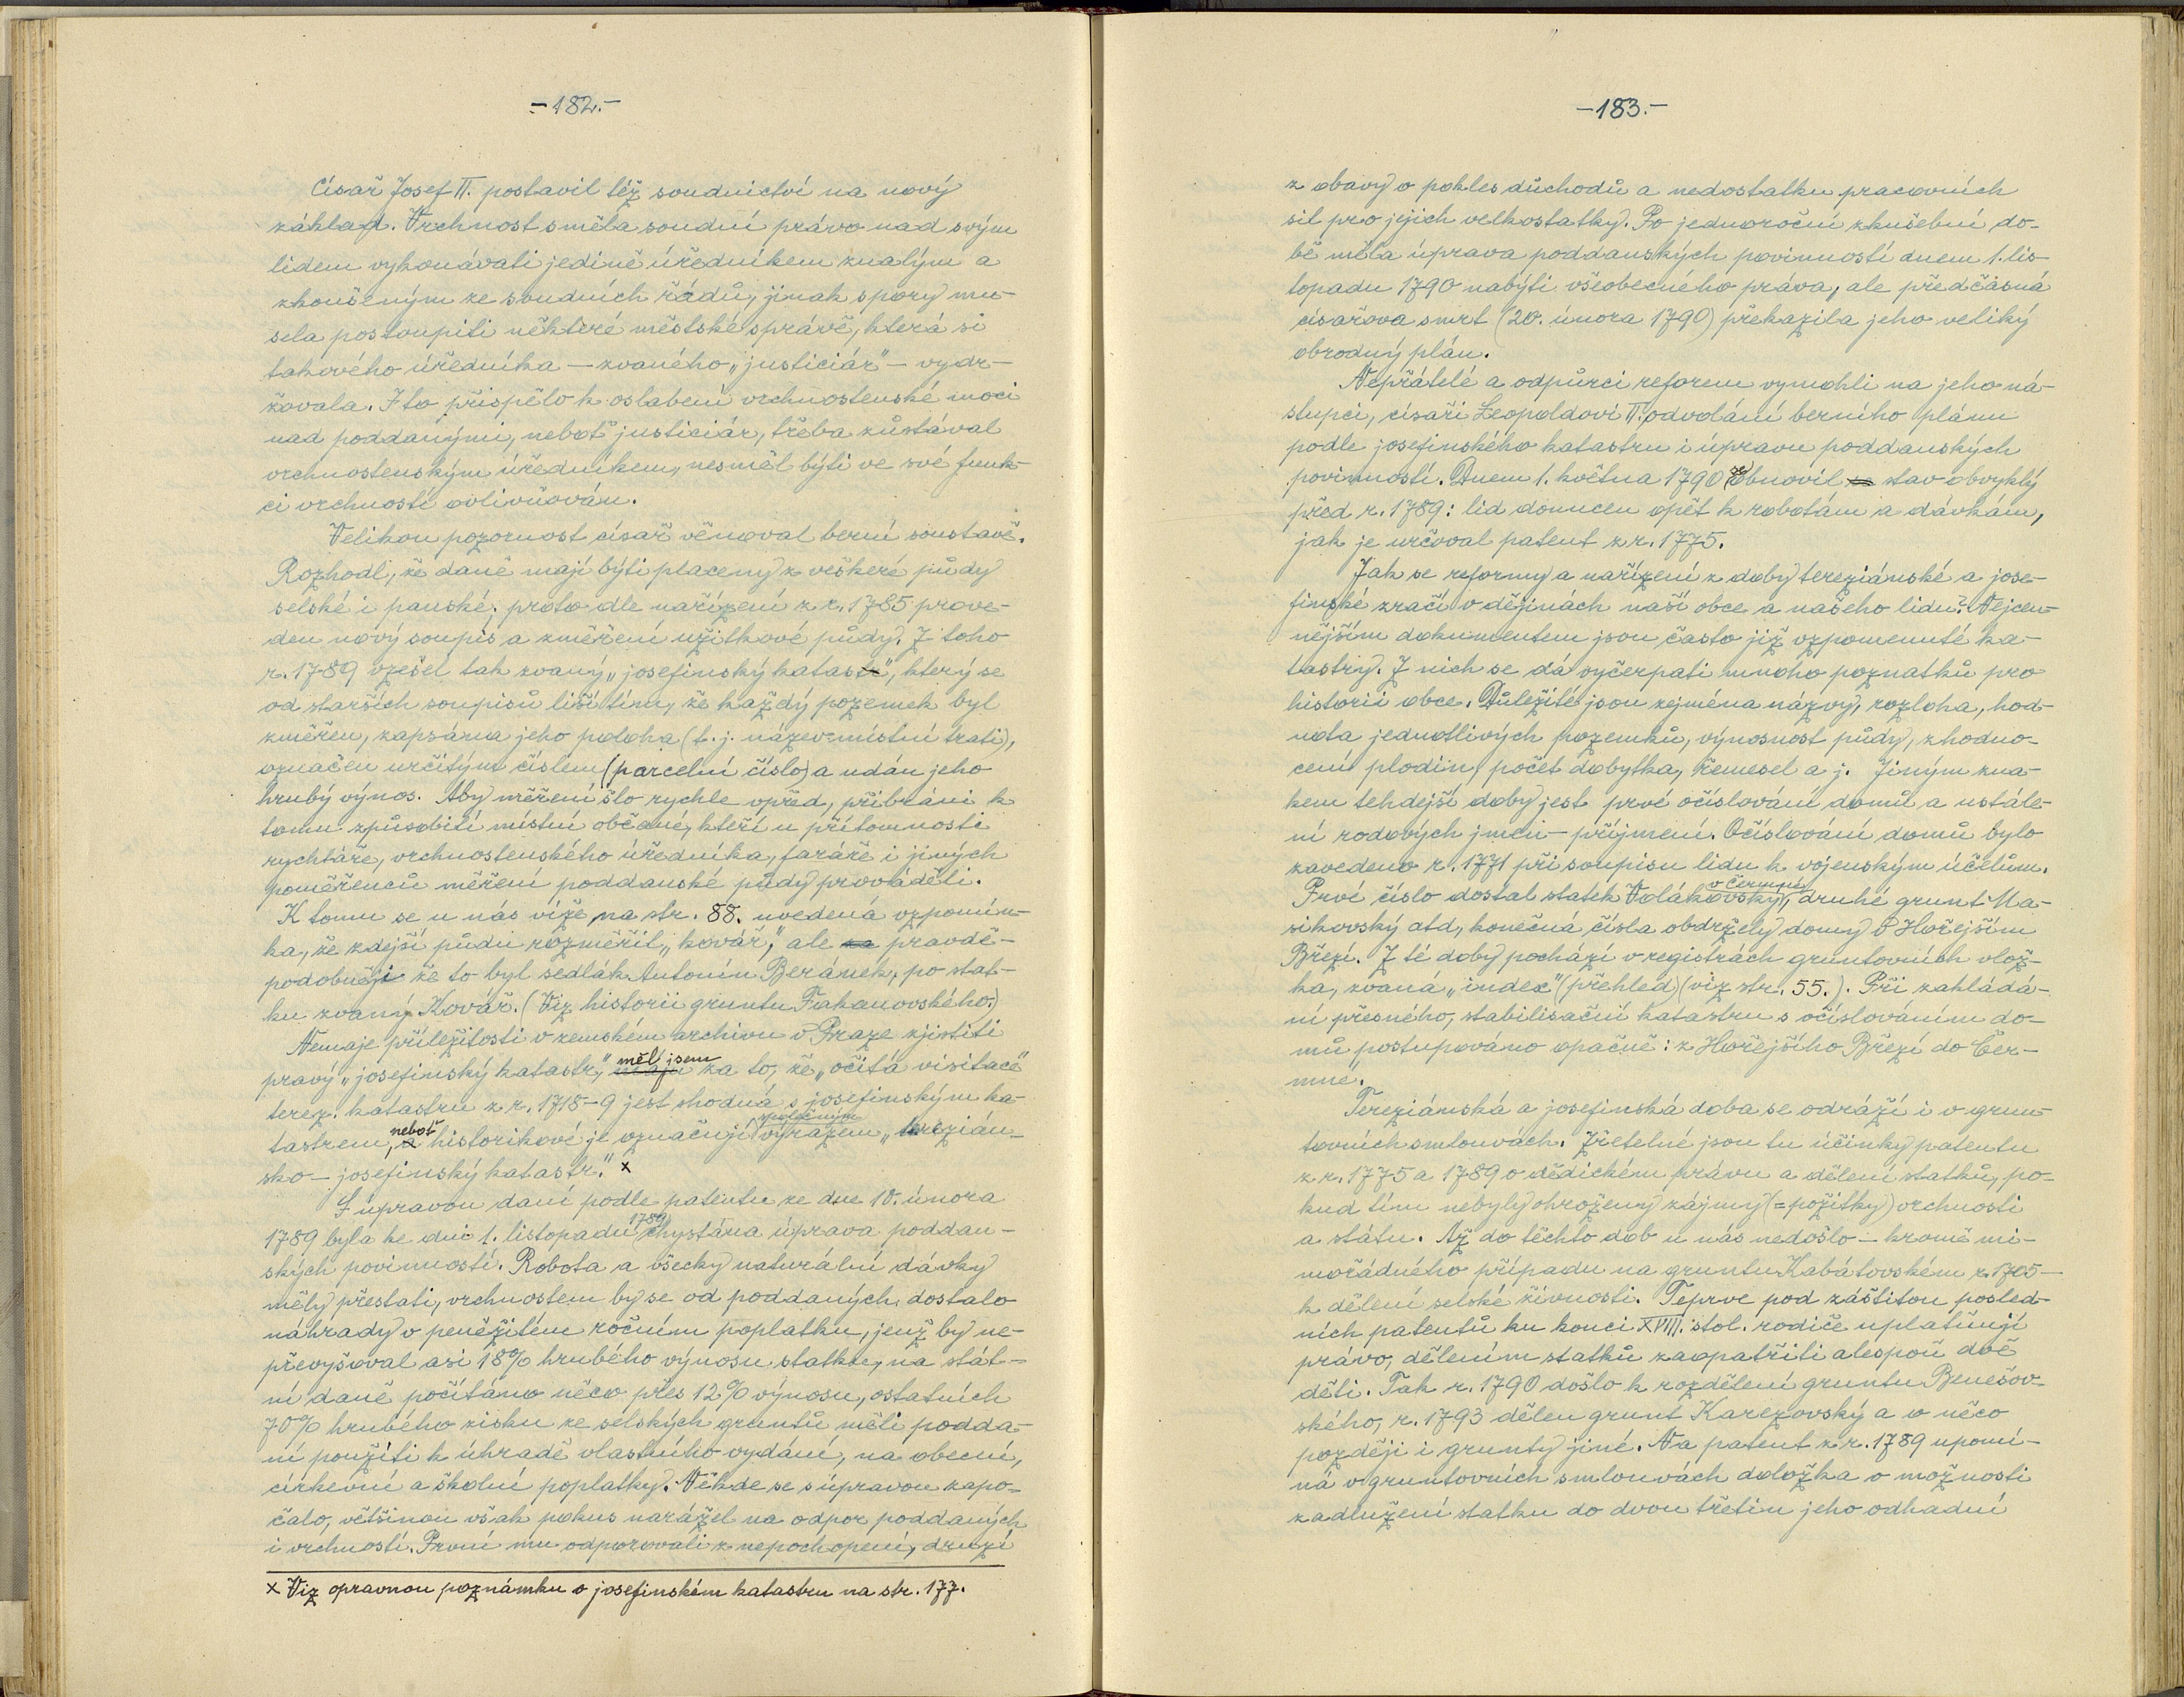 -182.-
Císař Josef II. postavil též soudnictví na nový
základ. Vrchnost směla soudní právo nad svým
lidem vykonávati jedině úředníkem znalým a
zkoušeným ze soudních řádů, jinak spory mu-
sela postoupiti některé městské správě, která si
takového úředníka — zvaného „justiciár" — vydr-
žovala. I to přispělo k oslabení vrchnostenské moci
nad poddanými, neboť justiciár, třeba zůstával
vrchnostenským úředníkem, nesměl býti ve své funk-
ci vrchností ovlivňován.
Velikou pozornost císař věnoval berní soustavě.
Rozhodl, že daně mají býti placeny z veškeré půdy
selské i panské; proto dle nařízení z r. 1785 prove-
den nový soupis a změření užitkové půdy. Z toho
r. 1789 vzešel tak zvaný „josefinský katastr", který se
od starších soupisů liší tím, že každý pozemek byl
změřen, zapsána jeho poloha (t.j. název místní trati),
označen určitým číslem (parcelní číslo) a udán jeho
hrubý výnos. Aby měření šlo rychle vpřed, přibráni k
tomu způsobilí místní občané, kteří u přítomnosti
rychtáře, vrchnostenského úředníka, faráře i jiných
pověřenců měření poddanské půdy prováděli.
K tomu se u nás víže na str. 88. uvedená vzpomín-
ka, že zdejší půdu rozměřil „kovář," ale pravdě-
podobněji že to byl sedlák Antonín Beránek, po stat-
ku zvaný Kovář. (Viz historii gruntu Fakanovského.)
Nemaje příležitosti v zemském archivu v Praze zjistiti
pravý „josefinský katastr," měl jsem za to, že „očitá visitace"
terez. katastru z r. 1718-9 jest shodná s josefinským ka-
tastrem, neboť historikové je označují společným výrazem „terezián-
sko - josefinský katastr." x
S úpravou daní podle patentu ze dne 10. února
1789 byla ke dni 1. listopadu 1789 chystána úprava poddan-
ských povinností. Robota a všecky naturální dávky
měly přestati, vrchnostem by se od poddaných dostalo
náhrady v peněžitém ročním poplatku, jenž by ne-
převyšoval asi 18% hrubého výnosu statku, na stát-
ní daně počítáno něco přes 12% výnosu, ostatních
70% hrubého zisku ze selských gruntů měli podda-
ní použíti k úhradě vlastního vydání, na obecní,
církevní a školní poplatky. Někde se s úpravou zapo-
čalo, většinou však pokus narážel na odpor poddaných
i vrchností. První mu odporovali z nepochopení, druzí
x Viz opravnou poznámku o josefinském katastru na str. 177.
-183.-
z obavy o pokles důchodů a nedostatku pracovních
sil pro jejich velkostatky. Po jednoroční zkušební do-
bě měla úprava poddanských povinností dnem 1. lis-
topadu 1790 nabýti všeobecného práva, ale předčasná
císařova smrt (20. února 1790) překazila jeho veliký
obrodný plán.
Nepřátelé a odpůrci reforem vymohli na jeho ná-
stupci, císaři Leopoldovi II. odvolání berního plánu
podle josefinského katastru i úpravu poddanských
povinností. Dnem 1. května 1790 obnovil stav obvyklý
před r. 1789: lid donucen opět k robotám a dávkám,
jak je určoval patent z r. 1775.
Jak se reformy a nařízení z doby tereziánské a jose-
finské zračí v dějinách naší obce a našeho lidu? Nejcen-
nějším dokumentem jsou často již vzpomenuté ka-
tastry. Z nich se dá vyčerpati mnoho poznatků pro
historii obce. Důležité jsou zejména názvy, rozloha, hod-
nota jednotlivých pozemků, výnosnost půdy, zhodno-
cení plodin, počet dobytka, řemesel a j. Jiným zna-
kem tehdejší doby jest prvé očíslování domů a ustále-
ní rodových jmen - příjmení. Očíslování domů bylo
zavedeno r. 1771 při soupisu lidu k vojenským účelům.
Prvé číslo dostal statek Volákovský v Čermné, druhé grunt Ma-
sikovský atd, konečná čísla obdržely domy v Hořejším
Březí. Z té doby pochází v registrách gruntovních vlož-
ka, zvaná „index" (přehled) (viz str. 55.). Při zakládá-
ní přesného, stabilisační katastru s očíslováním do-
mů postupováno opačně: z Hořejšího Březí do Čer-
mné.
Tereziánská a josefinská doba se odráží i v grun-
tovních smlouvách. Zřetelné jsou tu účinky patentu
z r. 1775 a 1789 o dědickém právu a dělení statků, po-
kud tím nebyly ohroženy zájmy (= požitky) vrchnosti
a státu. Až do těchto dob u nás nedošlo — kromě mi-
mořádného případu na gruntu Kabátovském r. 1705 —
k dělení selské živnosti. Teprve pod záštitou posled-
ních patentů ku konci XVIII. stol. rodiče uplatňují
právo, dělením statků zaopatřiti alespoň dvě
děti. Tak r. 1790 došlo k rozdělení gruntu Benešov-
ského, r. 1793 dělen grunt Karezovský a o něco
později i grunty jiné. Na patent z r. 1789 upomí-
ná v gruntovních smlouvách doložka o možnosti
zadlužení statku do dvou třetin jeho odhadní